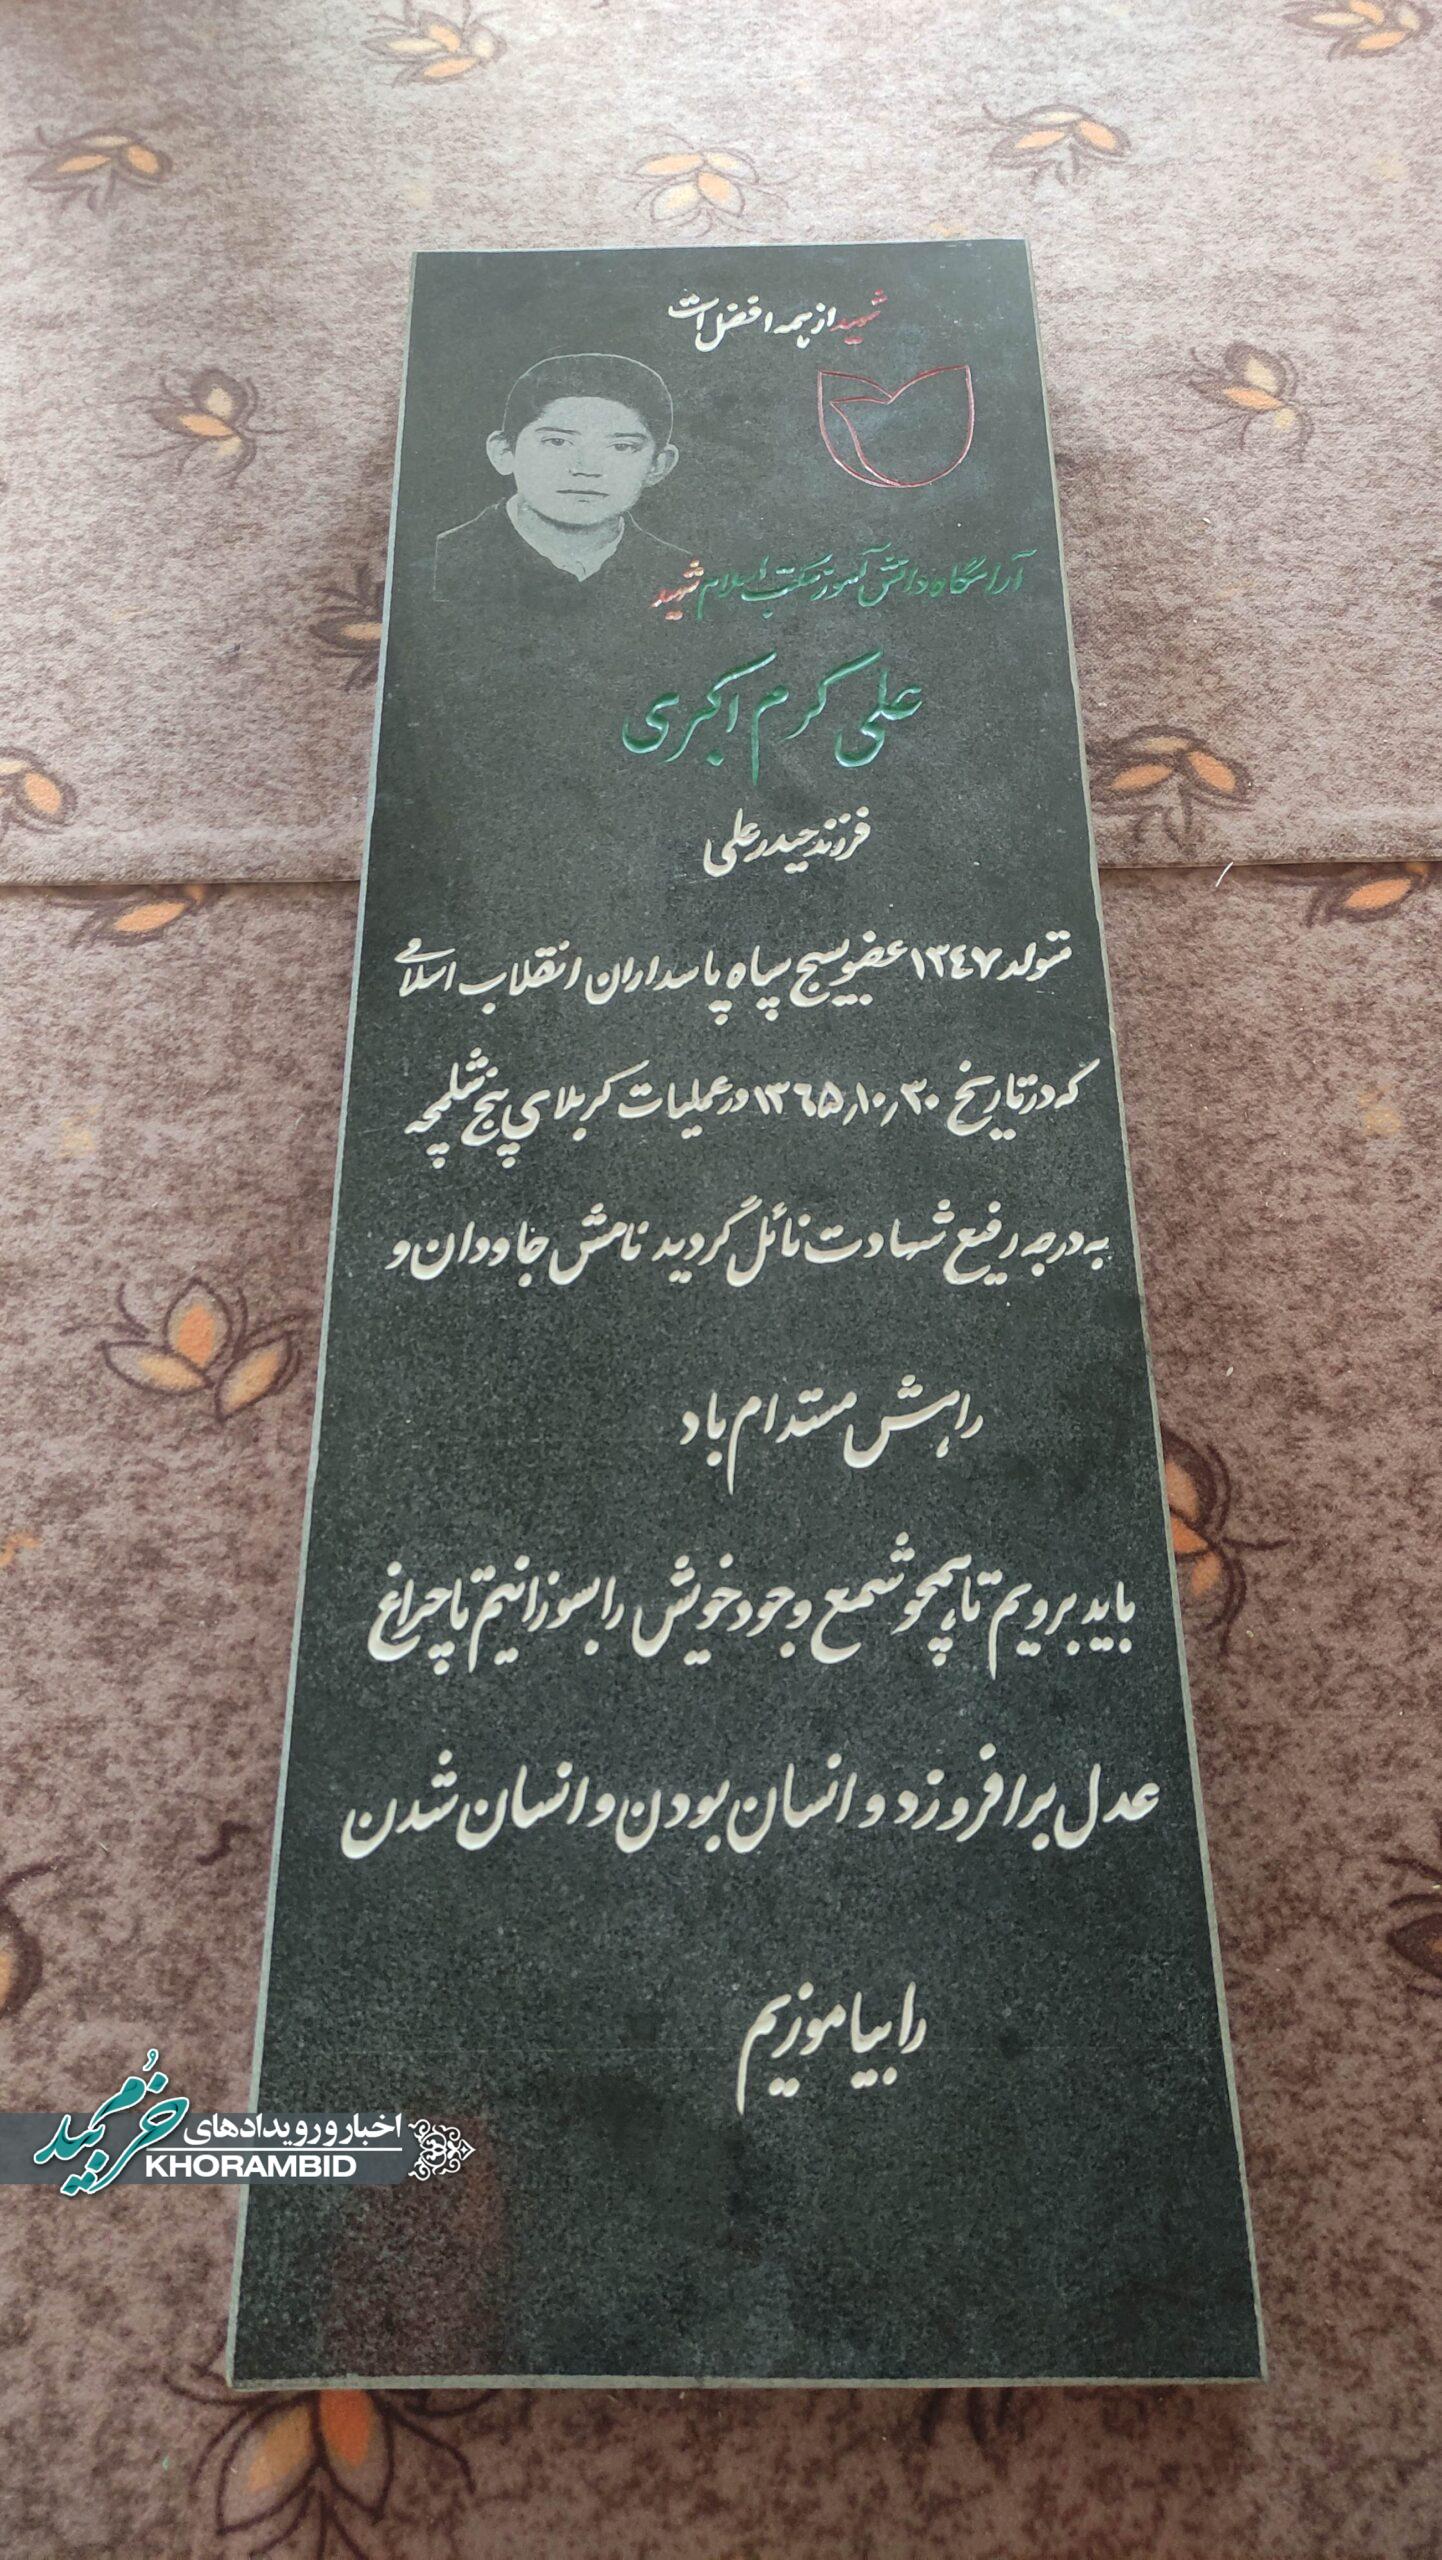 شهید از همه افضل است
آرامگاه دانش آموز مکتب اسلام شهید
علی کرم اکبری
فرزند حیدر علی
متولد ۱۳۴۷ عضو بسیج سپاه پاسداران انقلاب اسلامی
که در تاریخ ۱۳۶۵٫۱۰٫۳۰ در عملیات کربلای پنج شلمچه
به درجه رفیع شهادت نائل گردید نامش جاودان و
راهش مستدام باد
باید برویم تا همچو شمع وجود خویش را بسوزانیم تا چراغ
عدل برافروزد و انسان بودن و انسان شدن
را بیاموزیم
اخبار و رویدادهای خرمبید
KHORAMBID